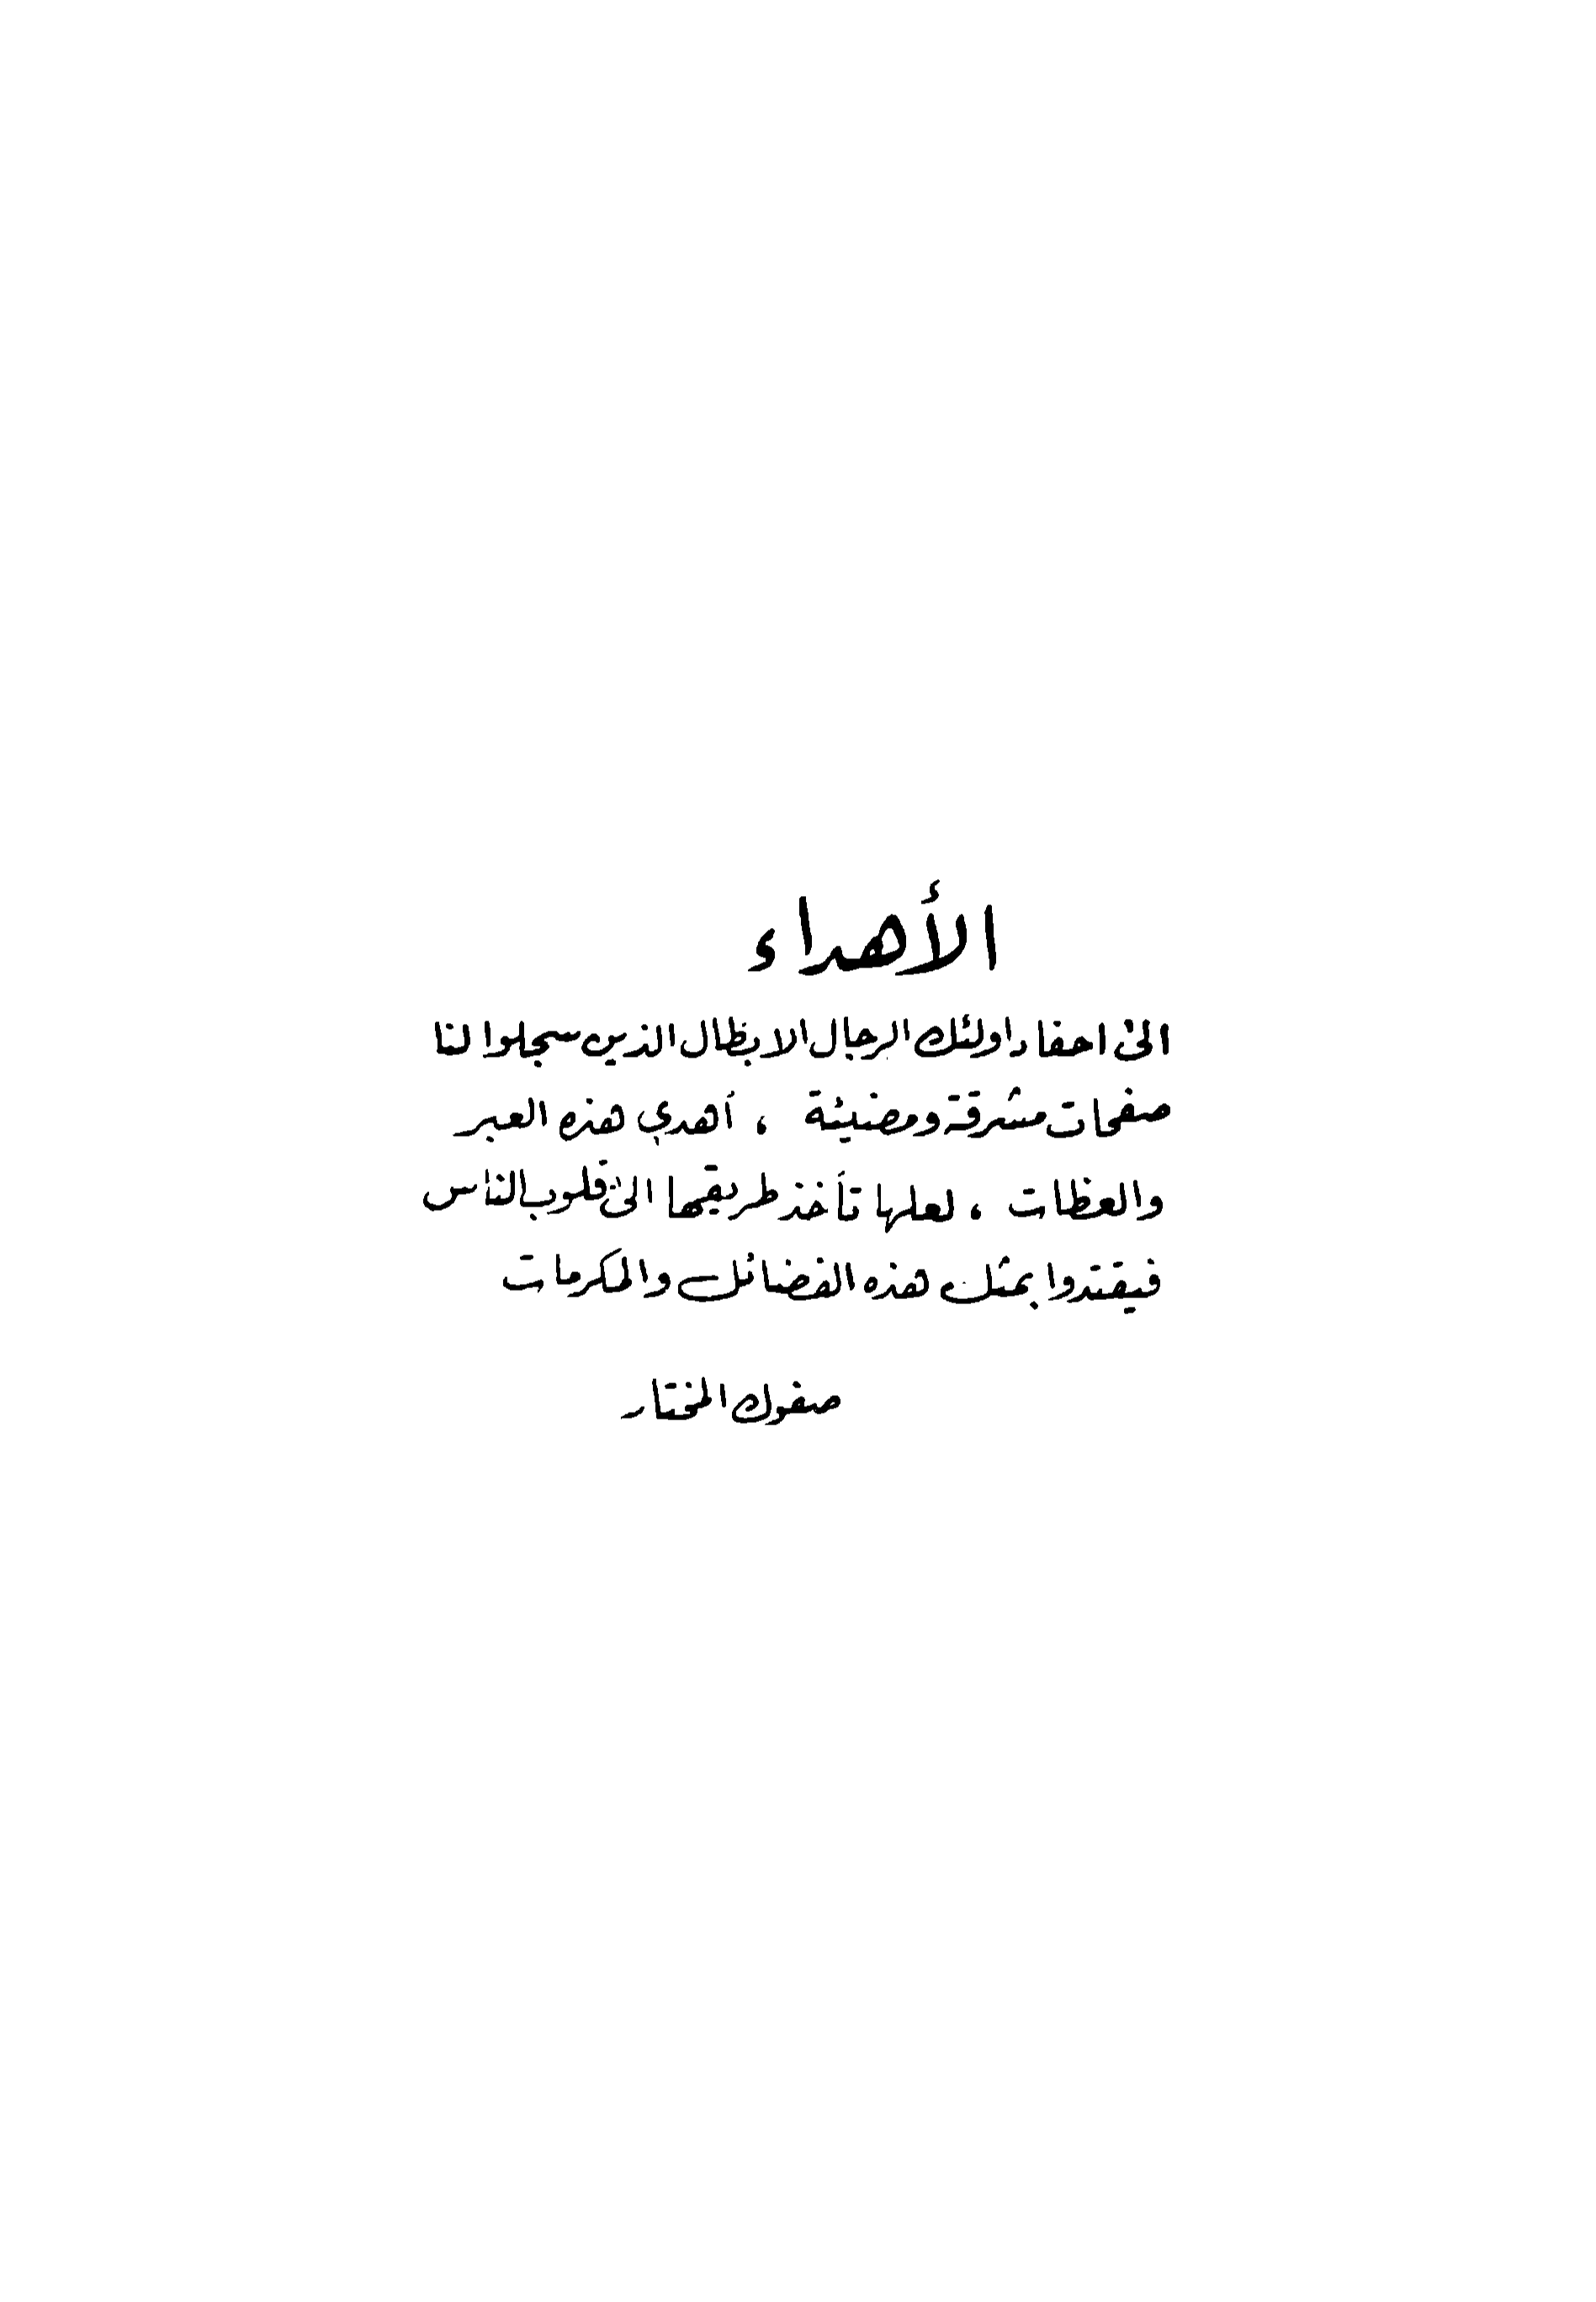 الأهداء
الى احفاد اولئك الرجال الابطال الذين سجلوا لنا
صفحات مشرقة ومضيئة ، أهدي هذه العبر
والعظات ، لعلها تأخذ طريقها الى قلوب الناس
فيقتدوا بمثل هذه الفضائل والمكرمات
صفوك المختار